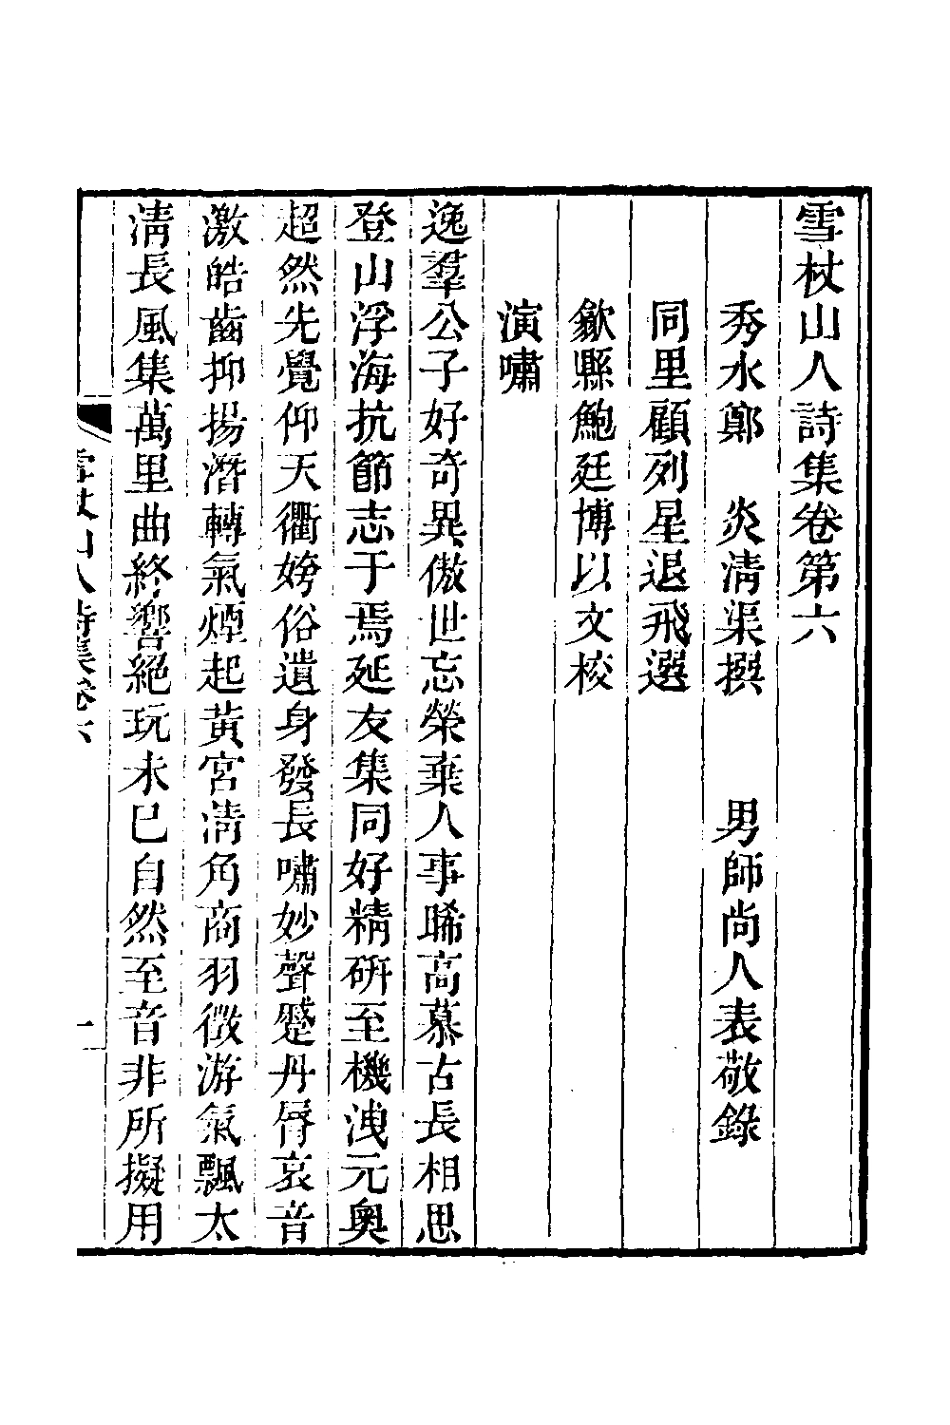 雪杖山人詩集卷第六
秀水鄭　炎清渠撰　　男師尚人表敬錄
同里顧列星退飛選
歙縣鮑廷博以文校
演嘯
逸羣公子好奇異傲世忘榮棄人事睎高慕古長相思
登山浮海抗節志于焉延友集同好精硏至機洩元奧
超然先覺仰天衢姱俗遺身發長嘯妙聲蹙丹脣哀音
激皓齒抑揚潛轉氣煙起黃宮淸角商羽徵游氣飄太
淸長風集萬里曲終響絕玩未已自然至音非所擬用
雪杖山人詩集卷六
一